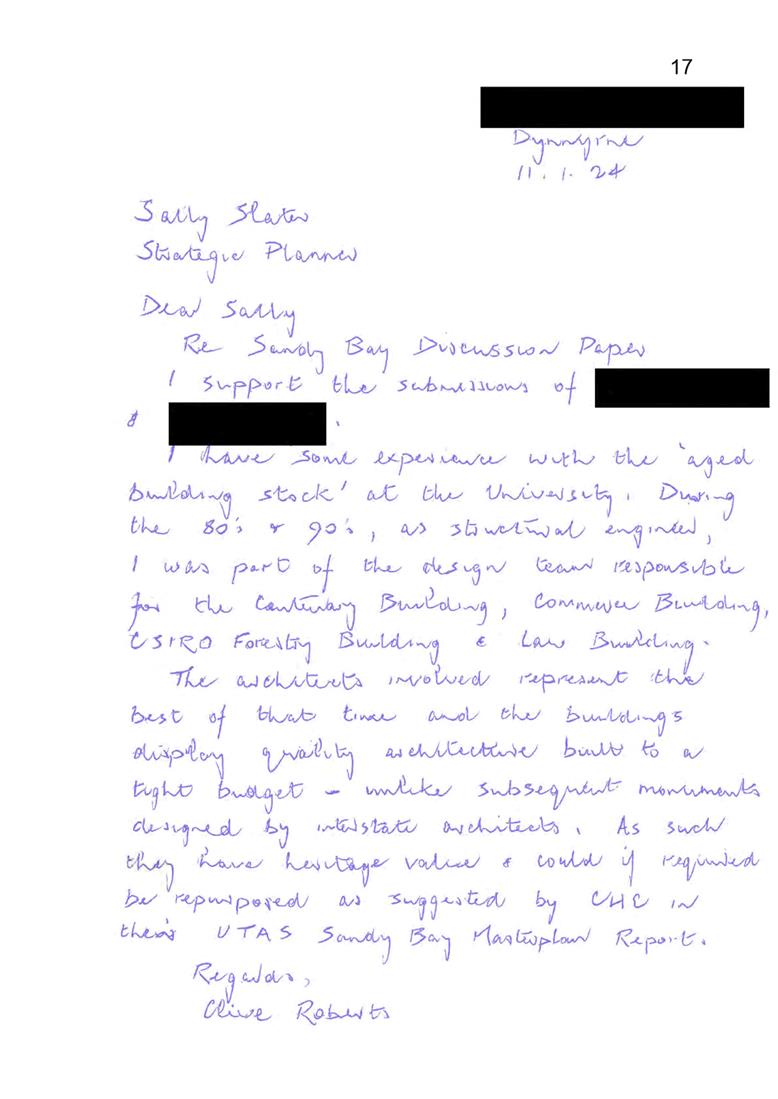 17
Dynnyrne
11. 1. 24
Sally Slater
Strategic Planner
Dear Sally
Re Sandy Bay Discussion Paper
I support the submissions of
& .
I have some experience with the 'aged
building stock' at the University. During
the 80's & 90's, as structural engineer,
I was part of the design team responsible
for the Centenary Building, Commerce Building,
CSIRO Forestry Building & Law Building.
The architects involved represent the
best of that time and the buildings
display quality architecture built to a
tight budget - unlike subsequent monuments
designed by interstate architects. As such
they have heritage value & could if required
be repurposed as suggested by CHC in
their UTAS Sandy Bay Masterplan Report.
Regards,
Clive Roberts